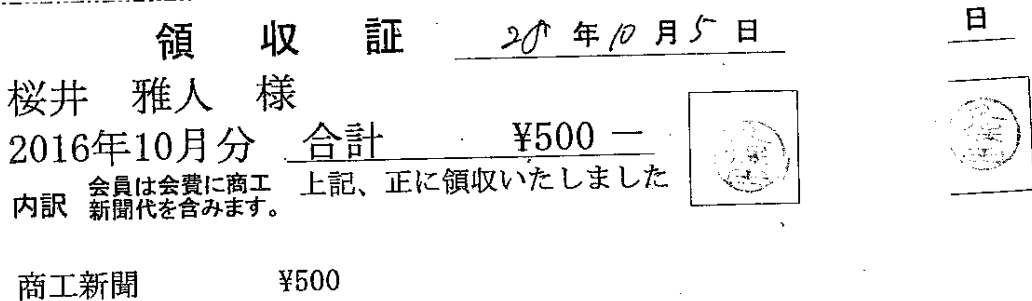 領収証 28年10月5日
日
桜井 雅人 様
2016年10月分 合計 ¥500 −
内訳 会員は会費に商工
新聞代を含みます。
上記、正に領収いたしました
商工新聞 ¥500